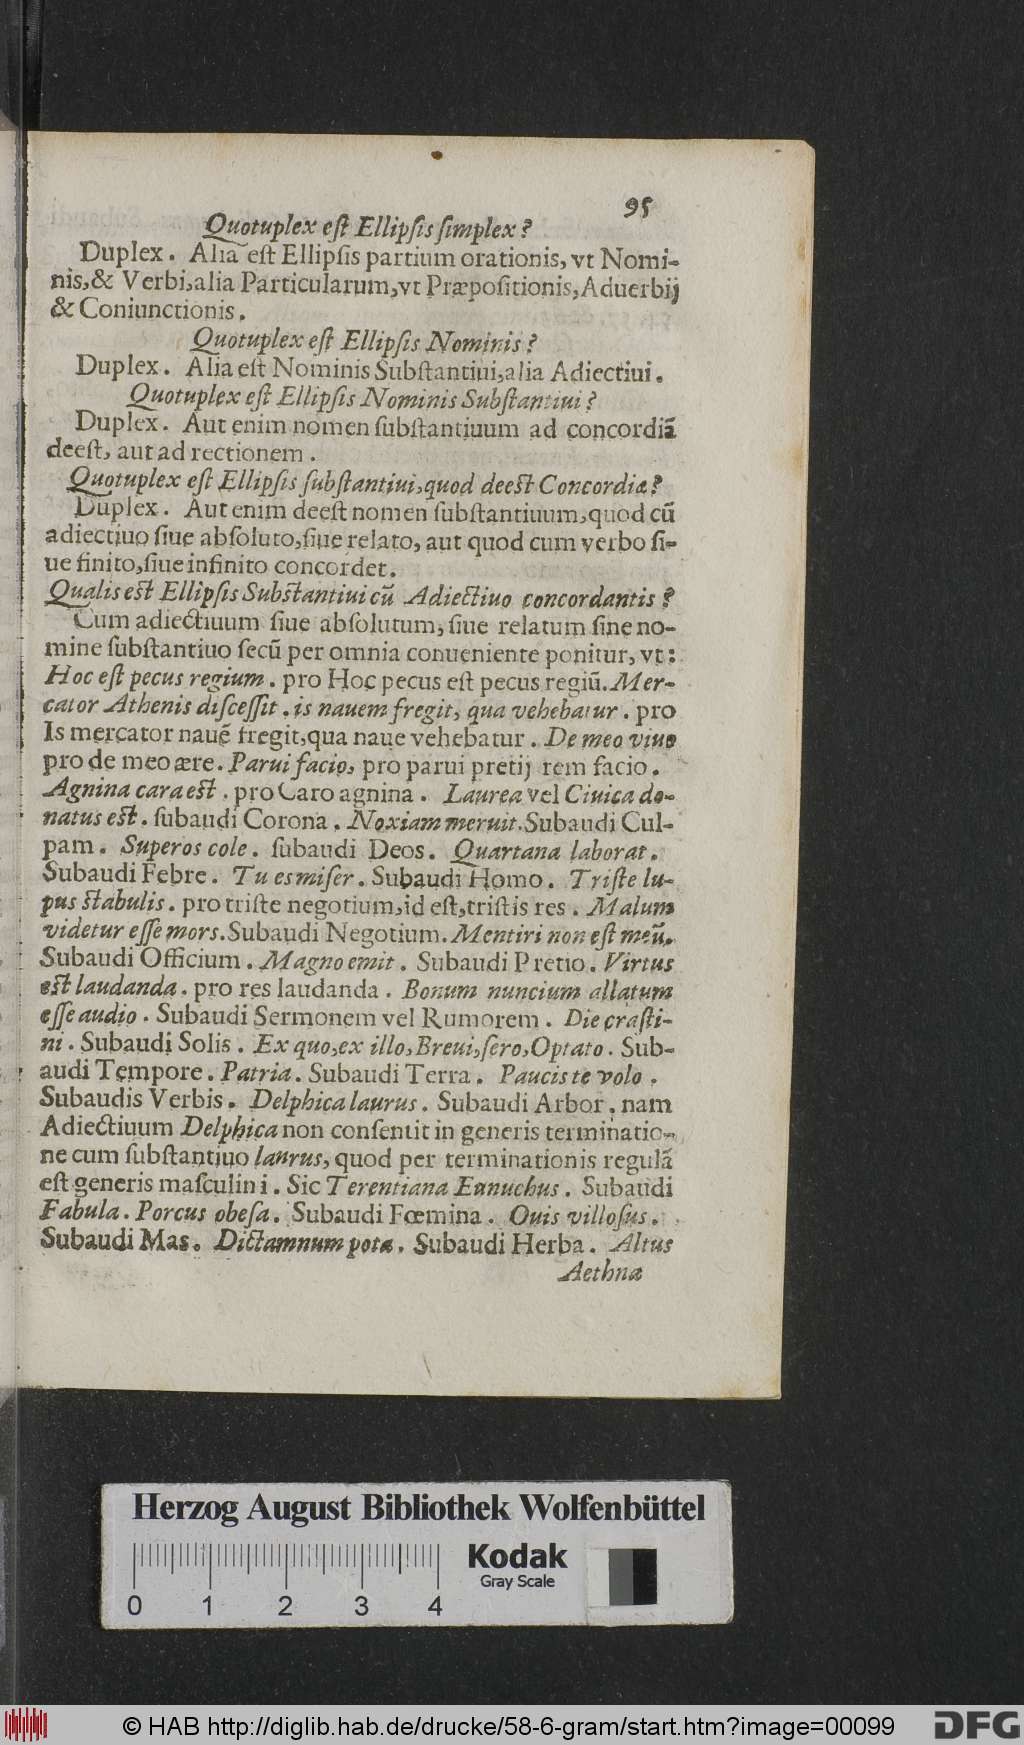 95
Quotuplex eſt Ellipſis ſimplex?
Duplex. Alia eſt Ellipſis partium orationis, vt Nomi-
nis,& Verbi,alia Particularum,vt Præpoſitionis,Aduerbij
& Coniunctionis.
Quotuplex eſt Ellipſis Nominis?
Duplex. Alia eſt Nominis Subſtantiui,alia Adiectiui.
Quotuplex eſt Ellipſis Nominis Subſtantiui?
Duplex. Aut enim nomen ſubſtantiuum ad concordiã
deeſt, aut ad rectionem.
Quotuplex eſt Ellipſis ſubſtantiui,quod deeſt Concordiæ?
Duplex. Aut enim deeſt nomen ſubſtantiuum,quod cũ
adiectiuo ſiue abſoluto,ſiue relato, aut quod cum verbo ſi-
ue finito,ſiue infinito concordet.
Qualis eſt Ellipſis Subſtantiui cũ Adiectiuo concordantis?
Cum adiectiuum ſiue abſolutum, ſiue relatum ſine no-
mine ſubſtantiuo ſecũ per omnia conueniente ponitur, vt:
Hoc eſt pecus regium. pro Hoc pecus eſt pecus regiũ. Mer-
cator Athenis diſceſſit. is nauem fregit, qua vehebatur. pro
Is mercator nauẽ fregit,qua naue vehebatur. De meo viuo
pro de meo ære. Parui facio, pro parui pretij rem facio.
Agnina cara eſt. pro Caro agnina. Laurea vel Ciuica do-
natus eſt. ſubaudi Corona. Noxiam meruit. Subaudi Cul-
pam. Superos cole. ſubaudi Deos. Quartana laborat.
Subaudi Febre. Tu es miſer. Subaudi Homo. Triſte lu-
pus ſtabulis. pro triſte negotium,id eſt,triſtis res. Malum
videtur eſſe mors. Subaudi Negotium. Mentiri non eſt meũ.
Subaudi Officium. Magno emit. Subaudi Pretio. Virtus
eſt laudanda. pro res laudanda. Bonum nuncium allatum
eſſe audio. Subaudi Sermonem vel Rumorem. Die craſti-
ni. Subaudi Solis. Ex quo,ex illo,Breui,ſero,Optato. Sub-
audi Tempore. Patria. Subaudi Terra. Paucis te volo.
Subaudis Verbis. Delphica laurus. Subaudi Arbor. nam
Adiectiuum Delphica non conſentit in generis terminatio-
ne cum ſubſtantiuo laurus, quod per terminationis regulã
eſt generis maſculini. Sic Terentiana Eunuchus. Subaudi
Fabula. Porcus obeſa. Subaudi Fœmina. Ouis villoſus.
Subaudi Mas. Dictamnum pota. Subaudi Herba. Altus
Aethna
Herzog August Bibliothek Wolfenbüttel
Kodak
Gray Scale
0 1 2 3 4
© HAB http://diglib.hab.de/drucke/58-6-gram/start.htm?image=00099
DFG